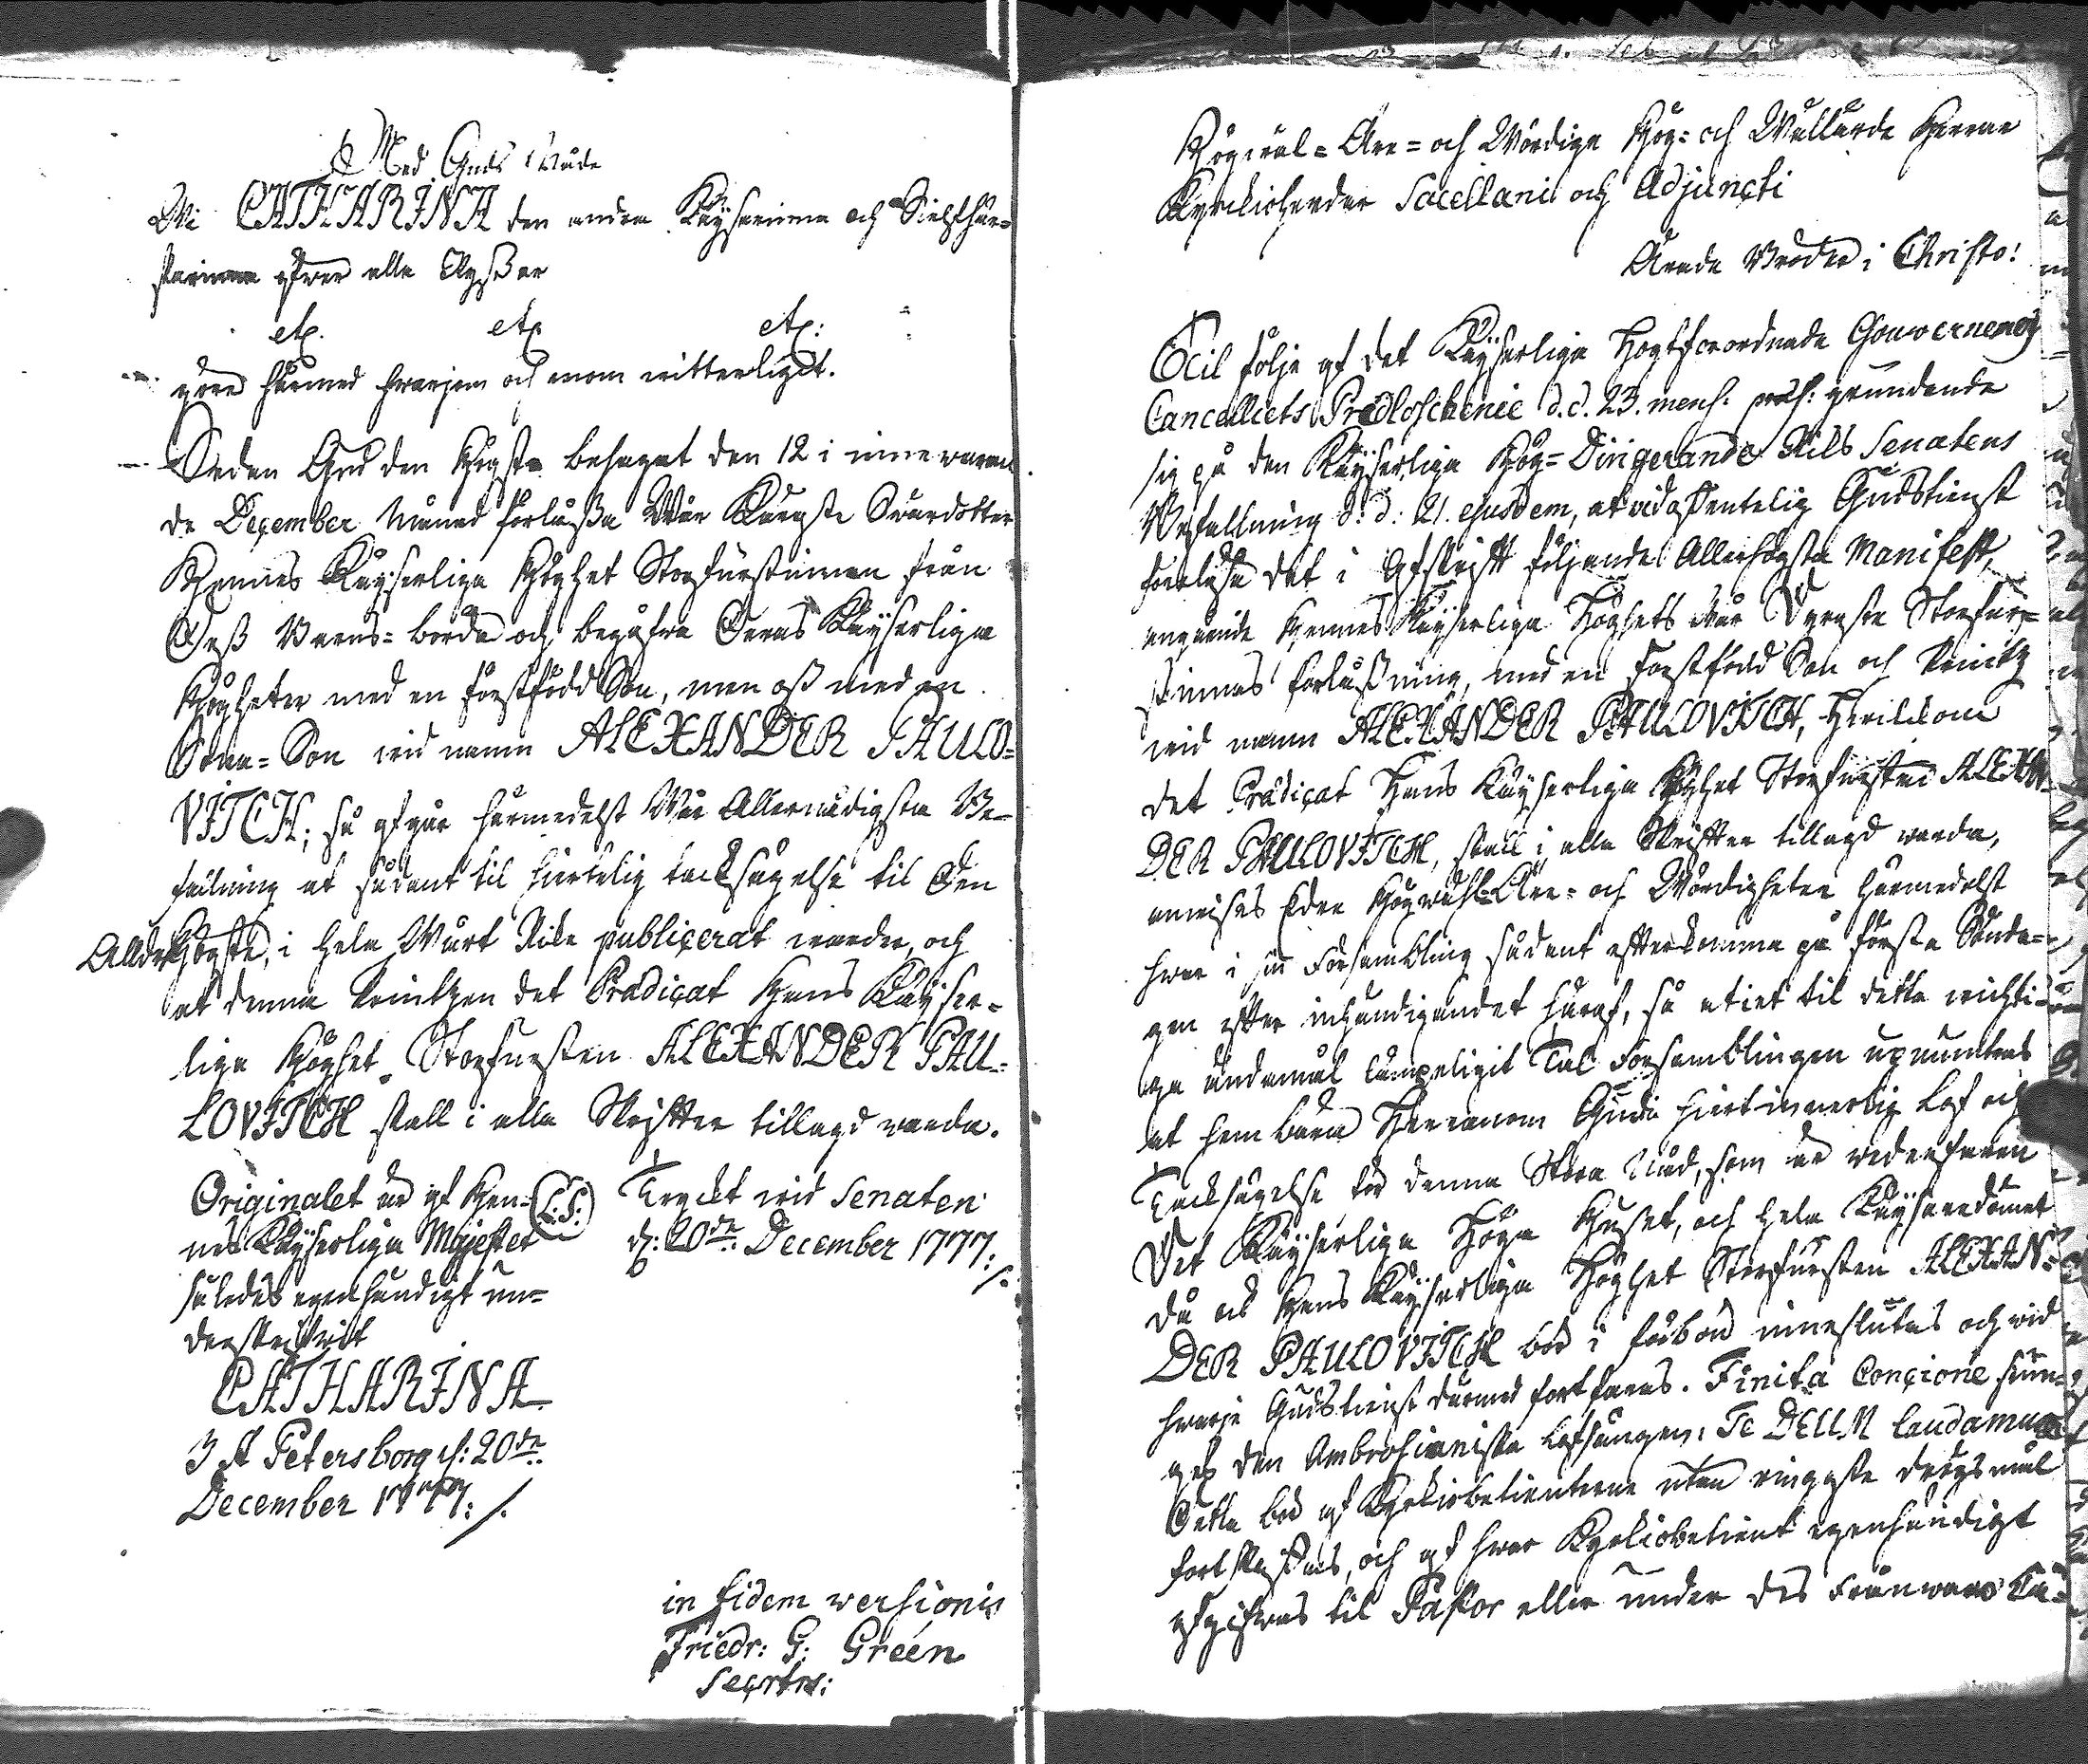 Med Guds Nåde
Wi CATHARINA den andra Käyserinna och Sielfhär-
skarinna öfver alla Ryssar
etc. etc. etc:
göre härmed hvarjom och enom witterligit.
Sedan Gud den Högste behagat den 12 i innevaran-
de December Månad förlåssa Wår Käraste Svärdotter
Hennes Käyserliga Höghet Storfurstinnan från
Dess Barns-börda och begåfva Deras Käyserliga
Högheter med en förstfödd Son, men oss med en
Sona-Son wid namn ALEXANDER PAULO-
VITCH; så afgår härmedelst Wår Allernådigsta Be-
fallning at sådant til hiertelig tacksägelse til Den
Alldrahögste, i hela Wårt Rike publicerat warder, och
at denna Printzen det Prædicat Hans Käyser-
liga Höghet Storfursten ALEXANDER PAU-
LOVITCH skall i alla Skrifter tillagd warda.
Originalet är af Hen- (L.S.) Tryckt wid Senaten
nes Käyserliga Majestet d: 20de December 1777./.
således egenhändigt un-
derskrifvit
CATHARINA
I St Petersborg d: 20de
December 1777./.
in fidem versionis
Friedr: G: Green
Secrtrs:
Högwäl-Äre- och Wördige Hög- och Wällärde Herrar
Kyrckioherdar Sacellani och Adjuncti
Ärade Bröder i Christo!
Til följe af det Käyserliga Högtförordnade Gouvernements
Cancelliets Predloschenie d.d. 23. mens. grundande
sig på den Käyserliga Hög-Dirigerande Riks Senatens
Befallning d:d: 21. ejusdem, at wid offentelig Gudstienst
förelysa det i Afskrift följande Allerhögsta Manifest,
angående Hennes Käyserliga Höghets Wår Dyraste Storfur-
stinnas förlåssning, med en Förstfödd Son och Printz
wid namn ALEXANDER PAULOVITCH, Hvilcken
det Prædicat Hans Käyserliga Höghet Storfursten ALEXAN-
DER PAULOVITCH, skall i alla Skrifter tillagd warda,
anvises Edre Högwäl-Äre- och Wördigheter härmedelst
hvar i sin Försambling sådant efterkomma på första Sönda-
gen efter inhändigandet häraf, så at et til detta wichti-
ga ändamål lämpeligit Tal Församblingen upmuntras
at hembära Herranom Gudi hiertinnerlig Lof och
Tacksägelse för denna Stora Nåd, som är wederfaren
Det Käyserliga Höga Huset, och hela Käysaredömet
då ock Hans Käyserliga Höghet Storfursten ALEXAN-
DER PAULOVITCH bör i förbön inneslutas och wid
hvarje Gudstienst därmed fortfaras. Finita Concione siun-
ges den Ambrosianiska Lofsången: Te DEUM laudamus
Detta bör af Kyrkiobetienterne utan ringaste dröjsmål
fortskaffas, och af hvar Kyrkiobetient egenhändigt
afgifvas til Pastor eller under des frånwaro Ca-